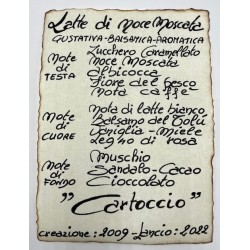 Latte di Noce Moscata
GUSTATIVA-BALSAMICA-AROMATICA
Note di TESTA
Zucchero Caramellato
Noce Moscata
Albicocca
Fiore del Gesco
Nota Caffè
Note di CUORE
Nota di latte bianco
Balsamo del Tolù
Vaniglia - Miele
Legno di rosa
Note di FONDO
Muschio
Sandalo-Cacao
Cioccolato
"Cartoccio"
creazione: 2009 - Lancio: 2022